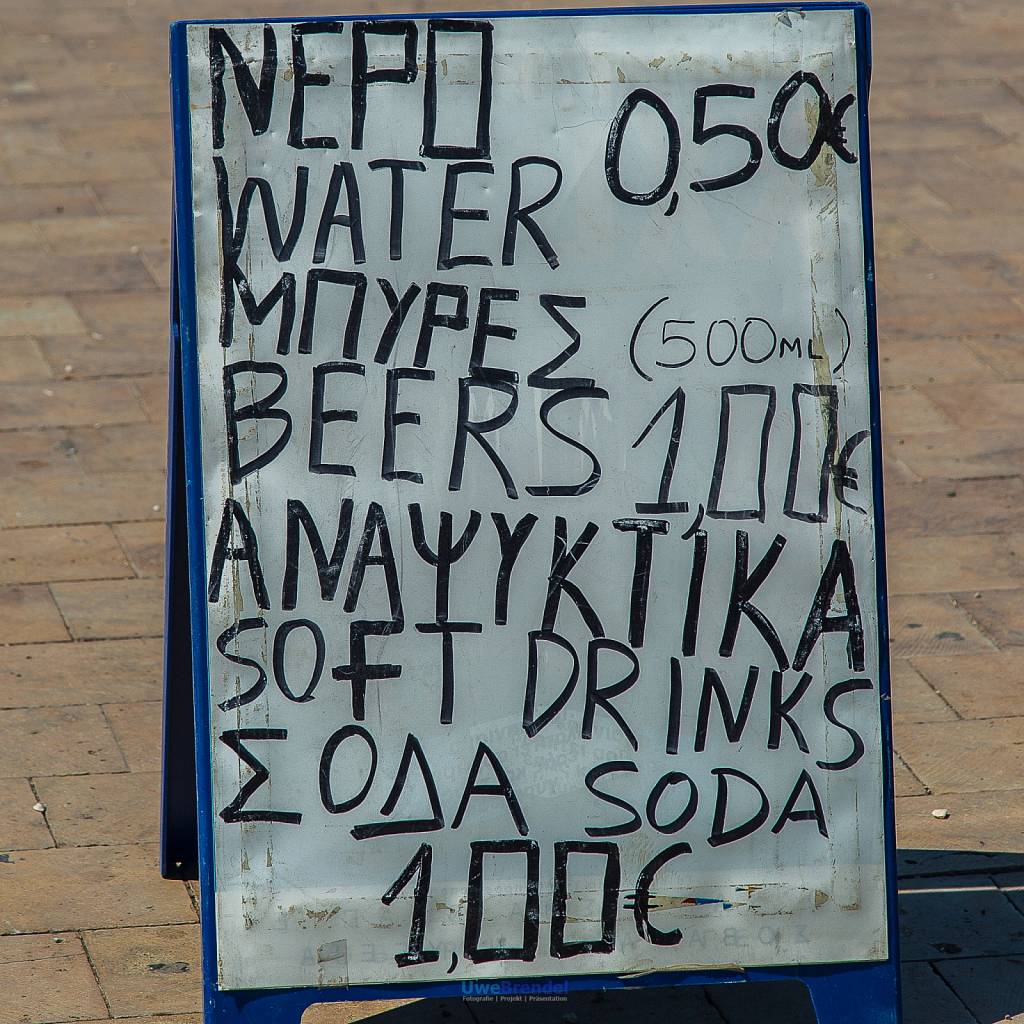 ΝΕΡΟ
0,50€
WATER
ΜΠΥΡΕΣ
(500ML)
BEERS 1,00€
ΑΝΑΨΥΚΤΙΚΑ
SOFT DRINKS
ΣΟΔΑ SODA
1,00€
UweBrendel
Fotografie | Projekt | Präsentation